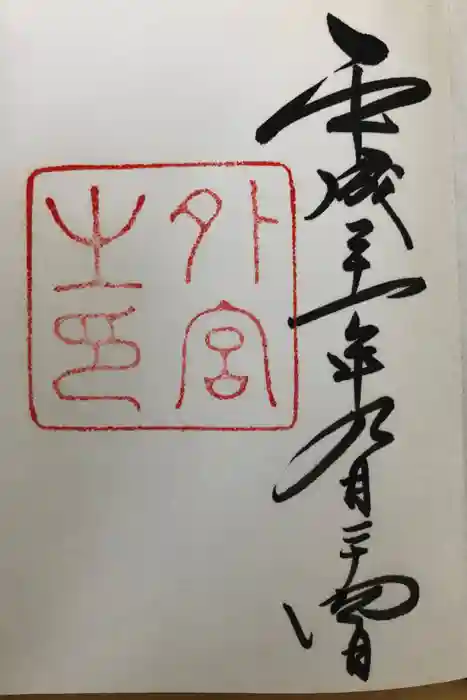 平成二十一年九月二十四日
外宮
之印